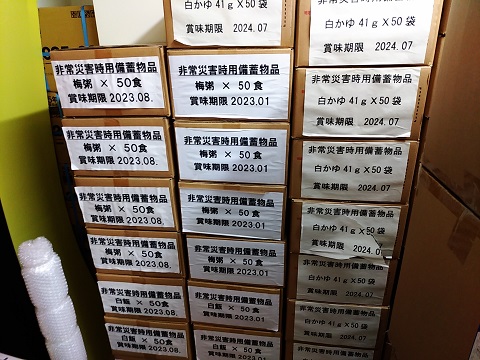 非常災害時用備蓄物品
梅粥 × 50食
賞味期限 2023.08.
非常災害時用備蓄物品
梅粥 × 50食
賞味期限 2023.08.
非常災害時用備蓄物品
梅粥 × 50食
賞味期限 2023.08.
非常災害時用備蓄物品
梅粥 × 50食
賞味期限 2023.08.
非常災害時用備蓄物品
白飯 × 50食
賞味期限 2023.08.
非常災害時用備蓄物品
白飯 × 50食
賞味期限 2023.08.
非常災害時用備蓄物品
梅粥 × 50食
賞味期限 2023.01
非常災害時用備蓄物品
梅粥 × 50食
賞味期限 2023.01
非常災害時用備蓄物品
梅粥 × 50食
賞味期限 2023.01
非常災害時用備蓄物品
梅粥 × 50食
賞味期限 2023.01
非常災害時用備蓄物品
白飯 × 50食
賞味期限 2023.01
非常災害時用備蓄物品
白飯 × 50食
白かゆ 41g×50袋
賞味期限 2024.07
白かゆ 41g×50袋
賞味期限 2024.07
非常災害時用備蓄物品
白かゆ 41g×50袋
賞味期限 2024.07
非常災害時用備蓄物品
白かゆ 41g×50袋
賞味期限 2024.07
非常災害時用備蓄物品
白かゆ 41g×50袋
賞味期限 2024.07
非常災害時用備蓄物品
白かゆ 41g×50袋
賞味期限 2024.07
非常災害時用備蓄物品
白かゆ 41g×50袋
賞味期限 2024.07
非常災害時用備蓄物品